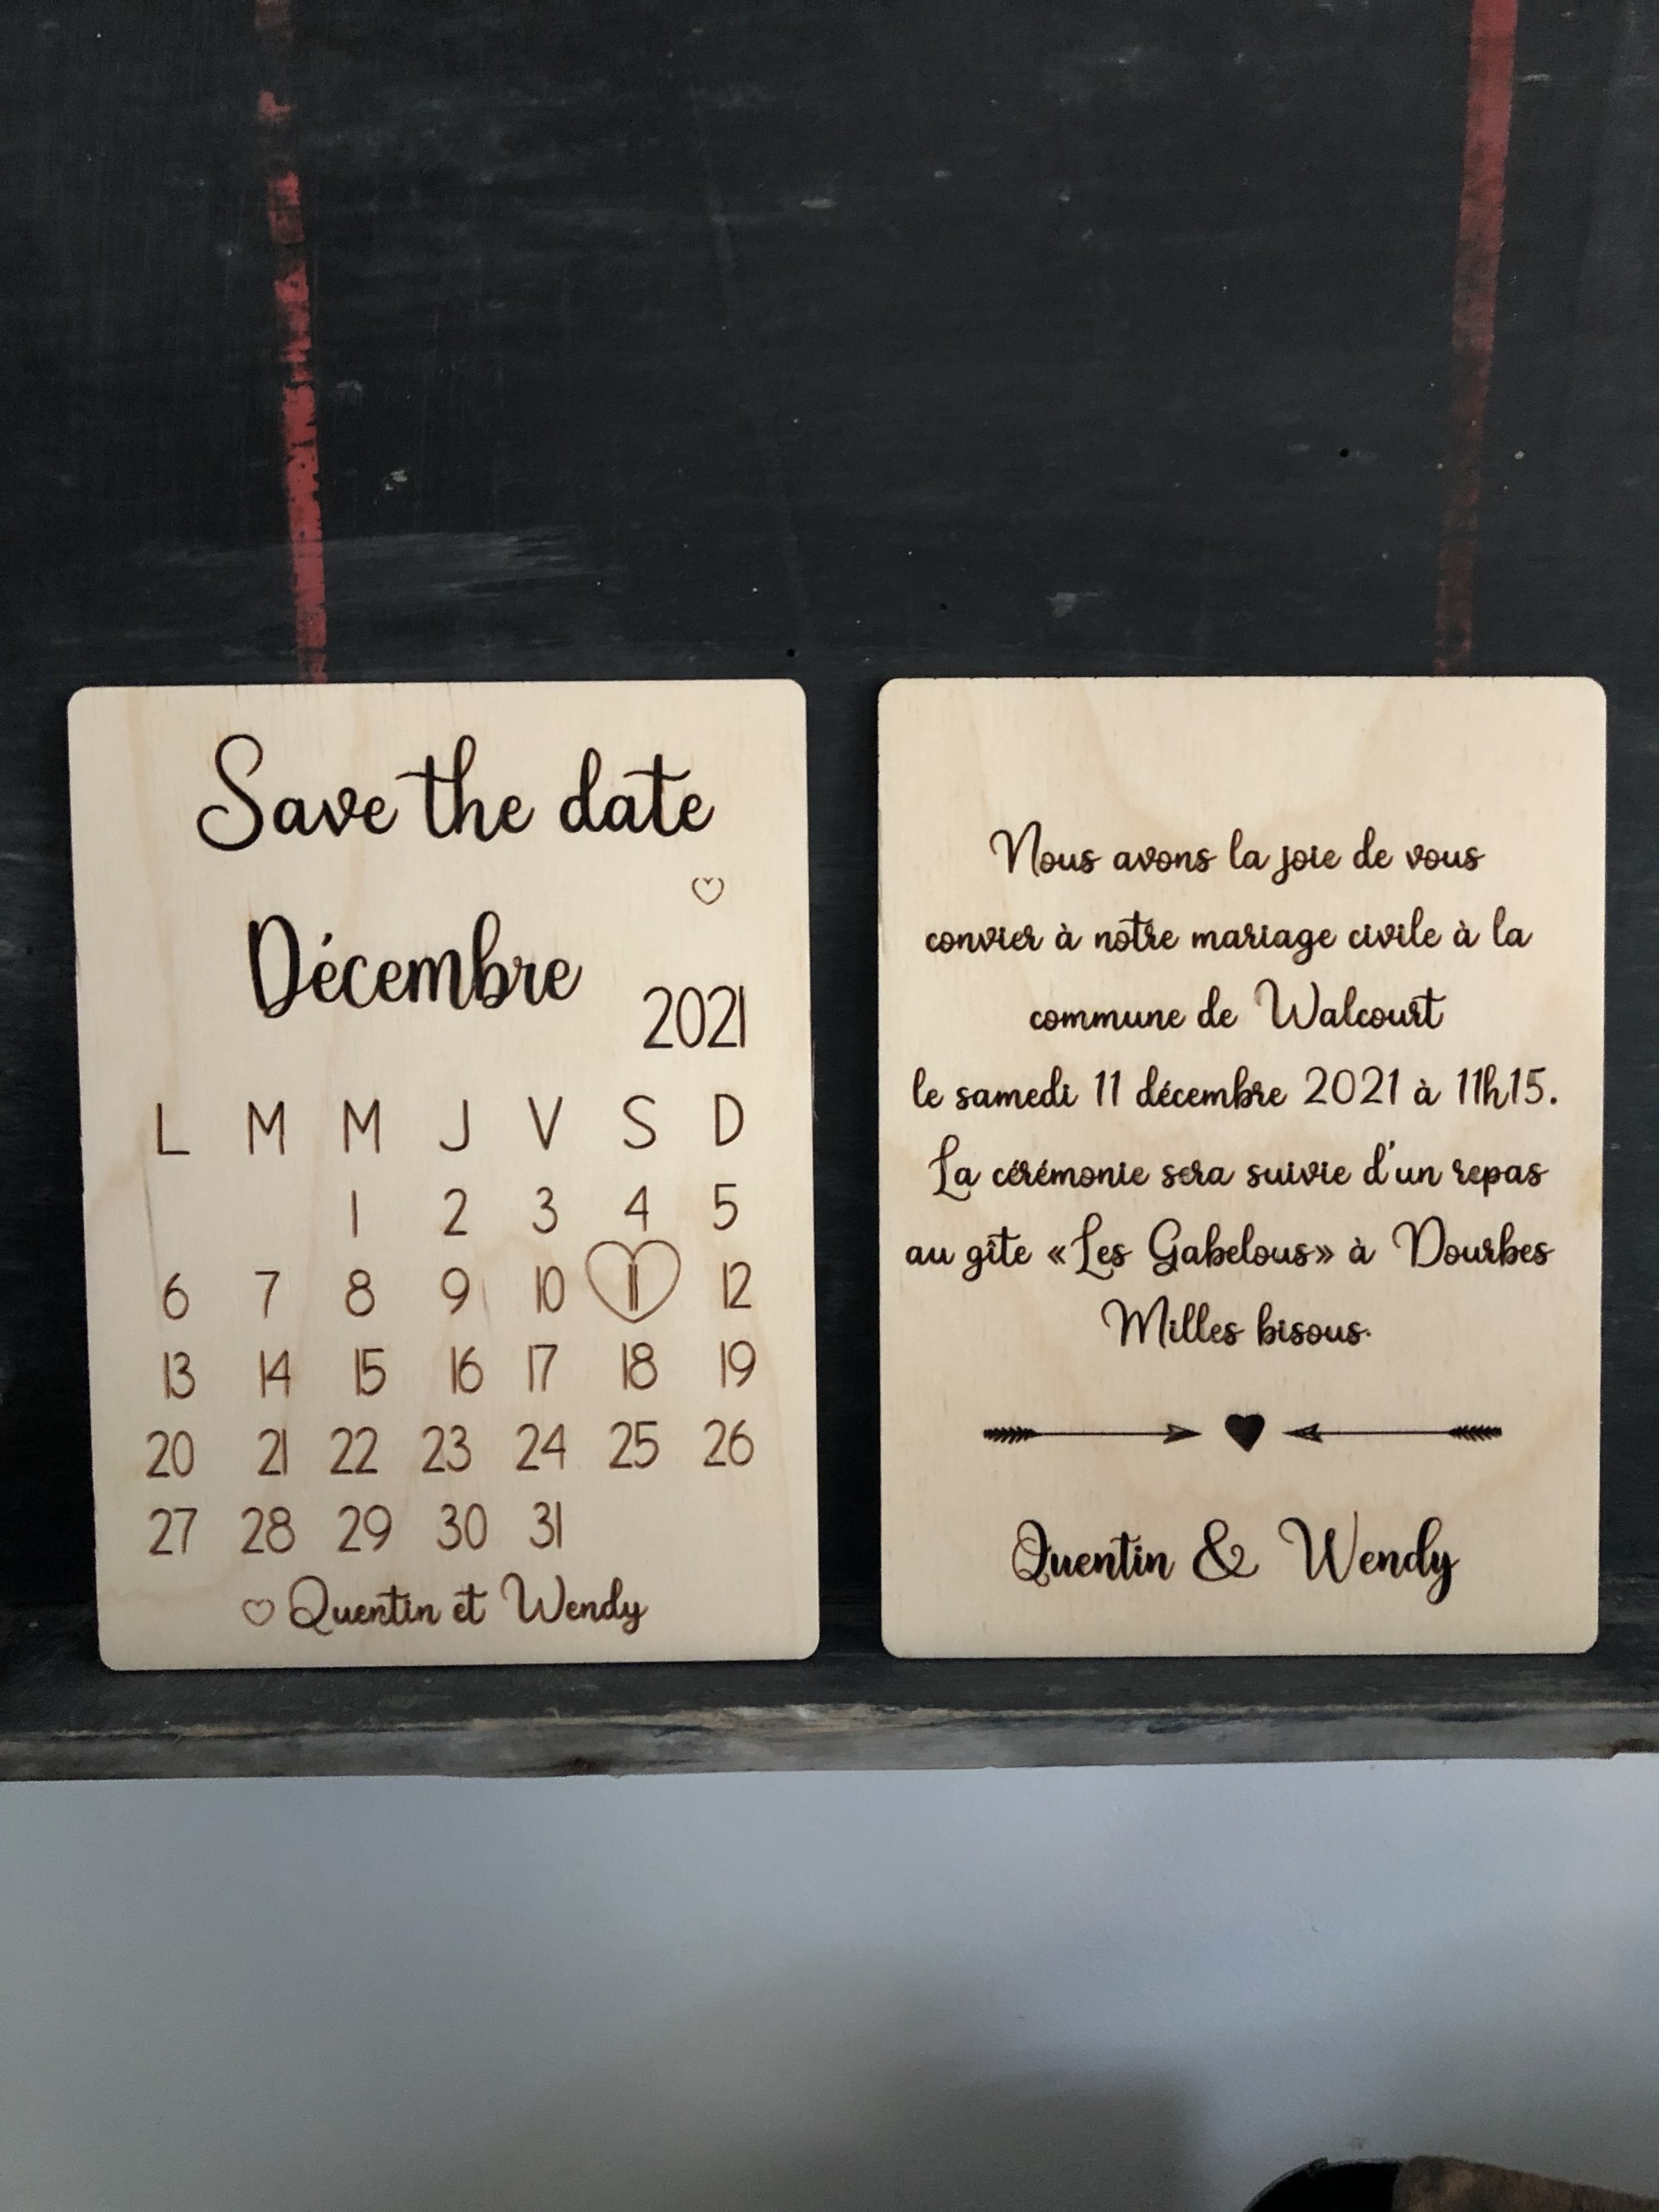 Save the date
Décembre
2021
L M M J V S D
1 2 3 4 5
6 7 8 9 10 11 12
13 14 15 16 17 18 19
20 21 22 23 24 25 26
27 28 29 30 31
Quentin et Wendy
Nous avons la joie de vous
convier à notre mariage civile à la
commune de Walcourt
le samedi 11 décembre 2021 à 11h15.
La cérémonie sera suivie d'un repas
au gîte «Les Gabelous» à Dourbes
Milles bisous.
Quentin & Wendy